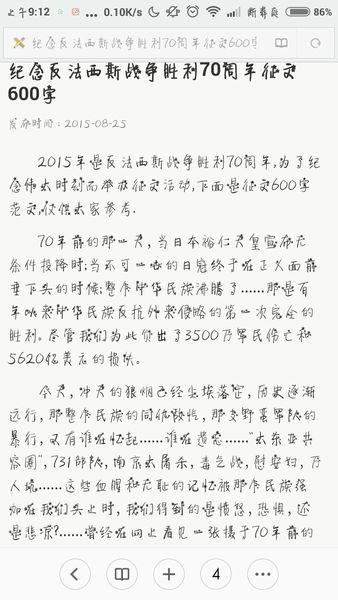 上午9:12 ... 0.10K/s 86%
纪念反法西斯战争胜利70周年征文600字
纪念反法西斯战争胜利70周年征文
600字
发布时间：2015-08-25
2015年是反法西斯战争胜利70周年,为了纪
念伟大时刻而举办征文活动,下面是征文600字
范文,仅供大家参考.
70年前的那一天,当日本裕仁天皇宣布无
条件投降时;当不可一世的日寇终于在正义面前
垂下头的时候;整个中华民族沸腾了……那是百
年以来中华民族反抗外来侵略的第一次完全的
胜利。尽管我们为此付出了3500万军民伤亡和
5620亿美元的损失。
今天,冲天的狼烟已经尘埃落定,历史逐渐
远行,那整个民族的同仇敌忾,那多野蛮军队的
暴行,又有谁在怀起……谁在遗忘……“大东亚共
荣圈”,731部队,南京大屠杀,毒气战,慰安妇,万
人坑……这些血腥和无耻的记忆被那个民族强
加在我们头上时,我们得到的是愤怒,恐惧,还
是悲凉?……曾经在网上看见一张摄于70年前的
4